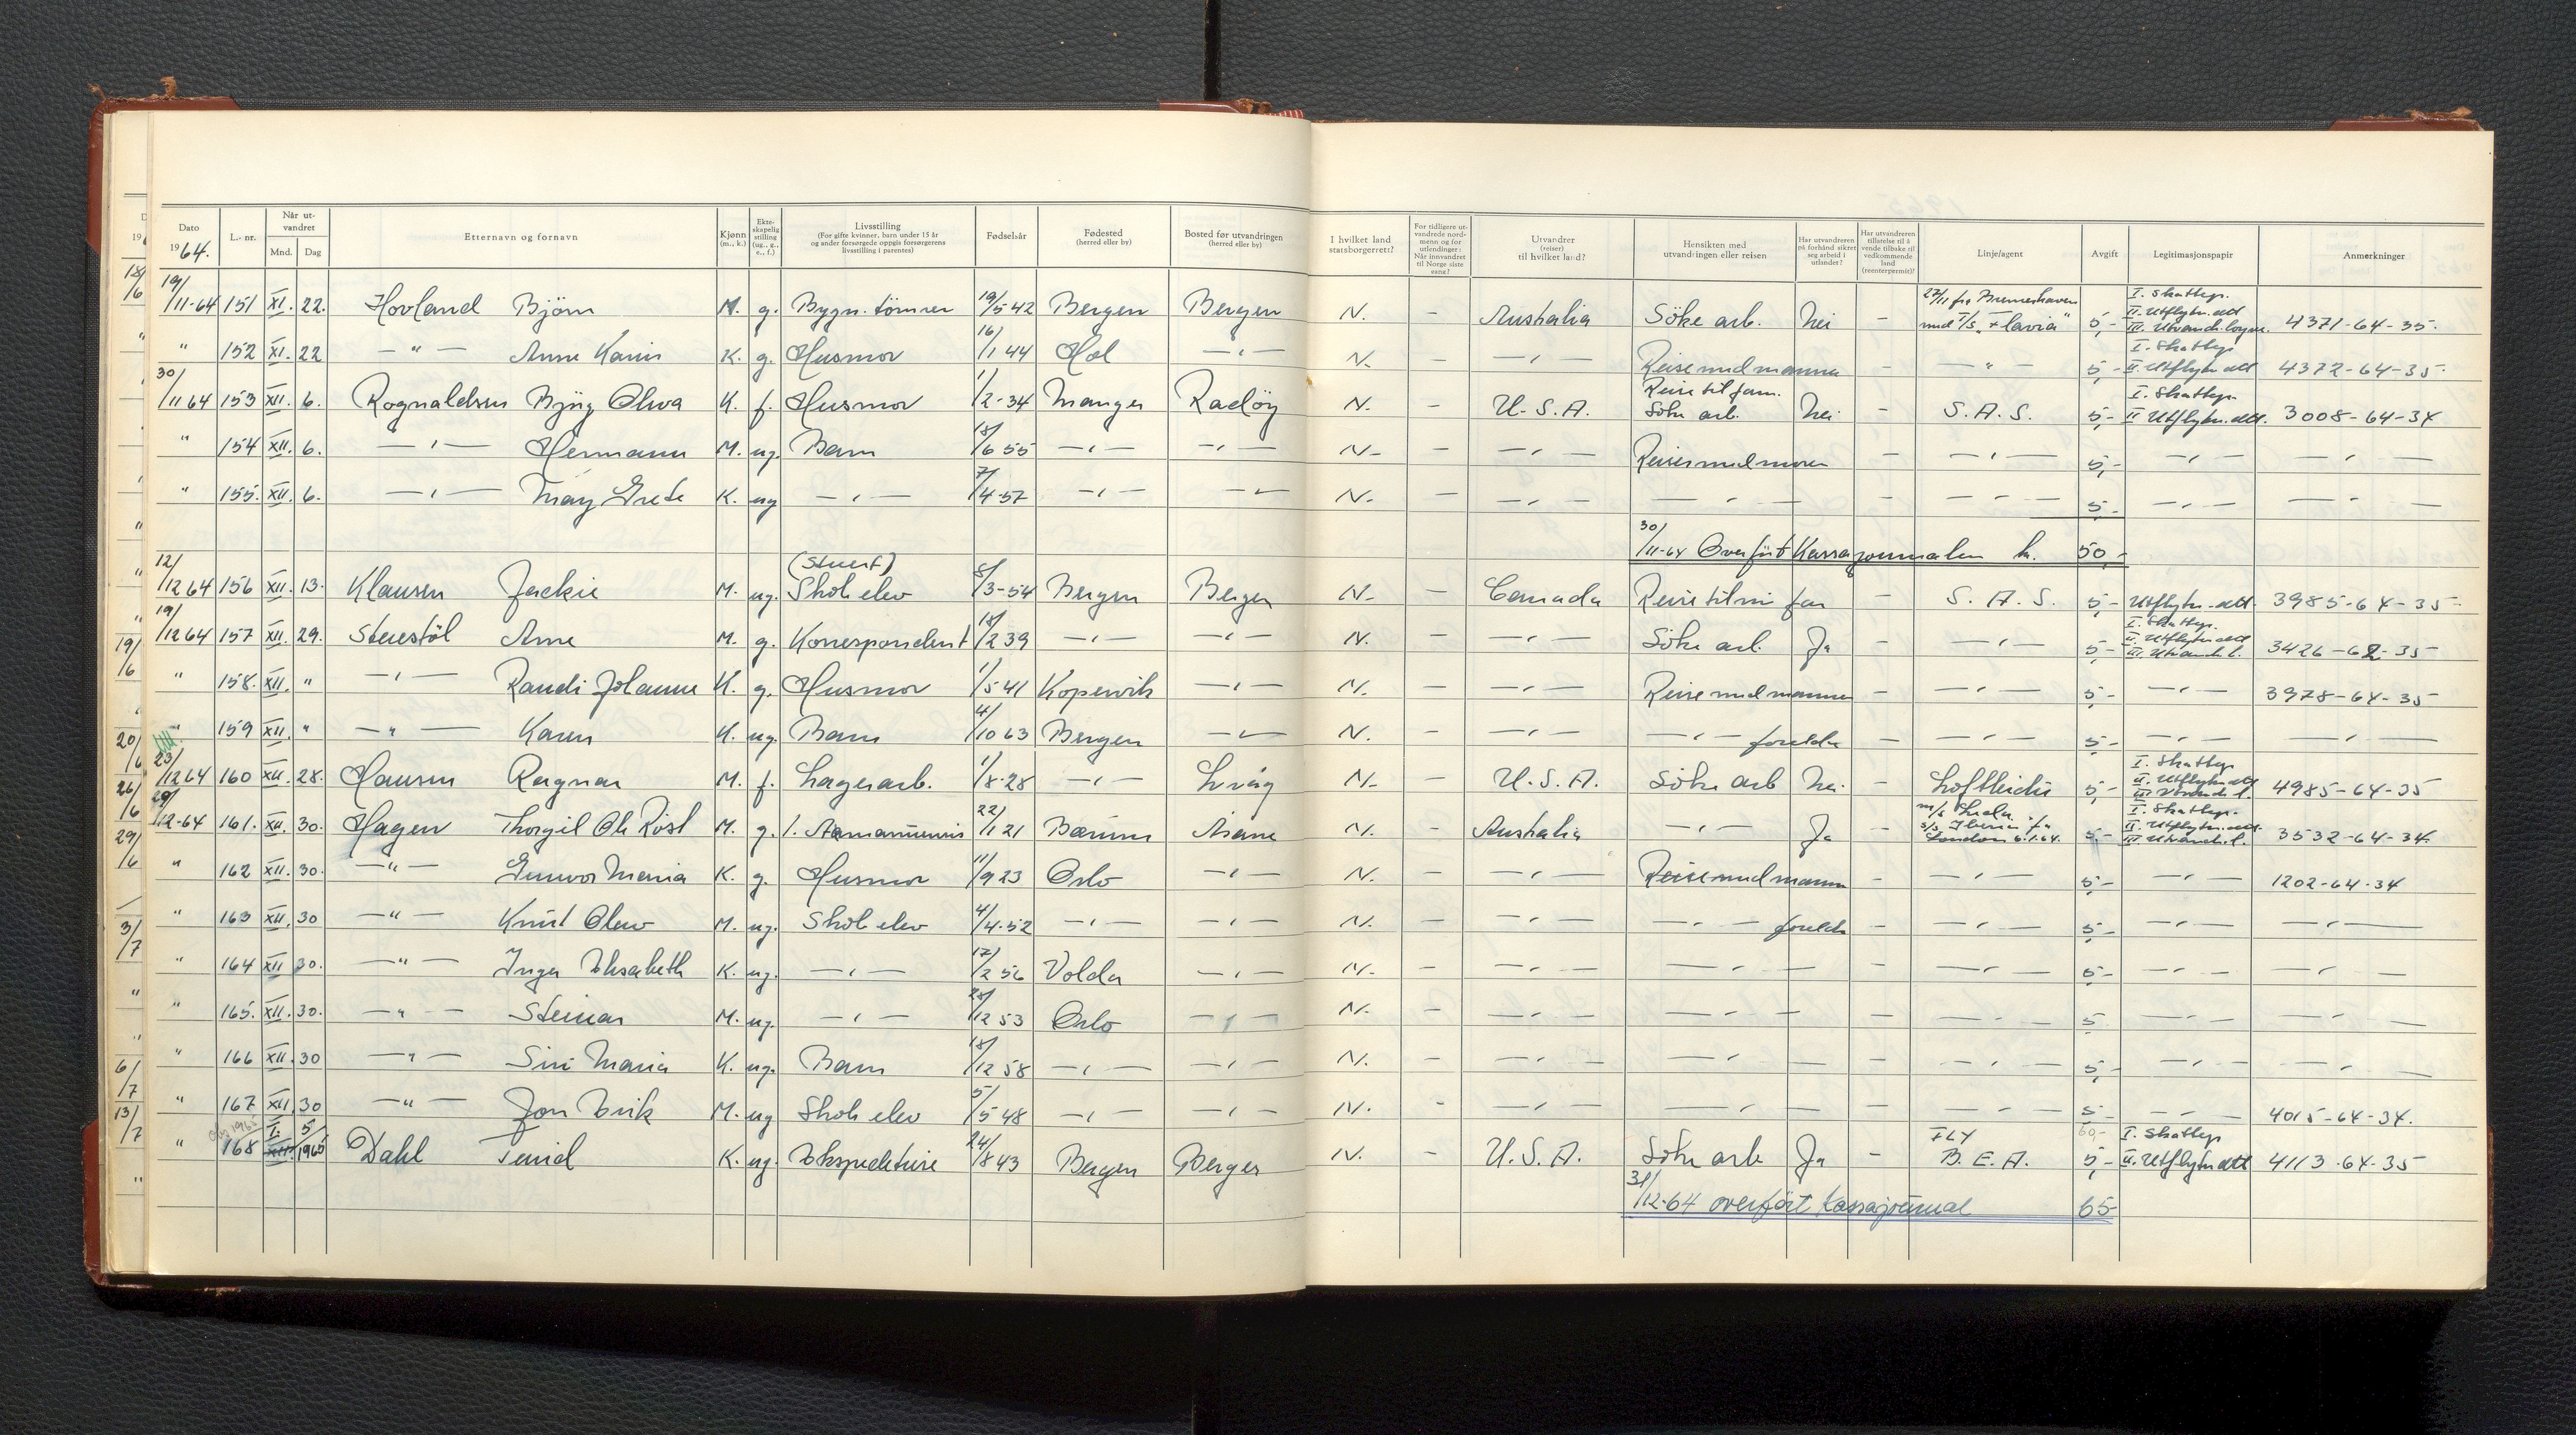 Dato 1964. | L.-nr. | Når utvandret Mnd. Dag | Etternavn og fornavn | Kjønn (m., k.) | Ekteskapelig stilling (ug., g., e., f.) | Livsstilling (For gifte kvinner, barn under 15 år og andre forsørgede oppgis forsørgerens livsstilling i parentes) | Fødselsår | Fødested (herred eller by) | Bosted før utvandringen (herred eller by) | I hvilket land statsborgerrett? | For tidligere utvandrede nordmenn og for utlendinger: Når innvandret til Norge siste gang? | Utvandrer (reiser) til hvilket land? | Hensikten med utvandringen eller reisen | Har utvandreren på forhånd sikret seg arbeid i utlandet? | Har utvandreren tillatelse til å vende tilbake til vedkommende land (reenterpermit)? | Linje/agent | Avgift | Legitimasjonspapir | Anmerkninger
19/11-64 151 XI. 22. Hovland Bjørn M. g. Bygn. tömrer 19/5 42 Bergen Bergen N. – Australia Söke arb. Nei – 27/11 fra Bremerhaven med T/S "Flavia" 5,- I. Skattep. II. Utflytn. att III. 4371-64-35.
" 152 XI. 22 – " – Anne Karin K. g. Husmor 16/1 44 Hol – " – N. – – " – Reise med mannen – – " – 5,- I. Skattep II. Utflytn att 4372-64-35
30/11 64 153 XII. 6. Rognaldsen Bjüg Oliva K. f. Husmor 1/2-34 Manger Radöy N. – U.S.A. Reise til fam. Söke arb. Nei – S.A.S. 5,- I. Skattep. II Utflytn. att. 3008-64-34
" 154 XII. 6. – " – Hermann M. ug. Barn 18/6 55 – " – – " – N. – – " – Reiser med moren – – " – 5,- – " – – " –
" 155. XII. 6. – " – May Grete K. ug – " – 7/4-57 – " – – " – N. – – " – – " – – – " – 5,- – " – – " –
30/11-64 Overfört Kassajournalen kr. 50,-
12/12 64 156 XII. 13. Klausen Jackie M. ug. (Stuert) Skole elev 8/3-54 Bergen Bergen N. – Canada Reise til sin far – S.A.S. 5,- Utflytn. att. 3985-64-35
19/12 64 157 XII. 29. Stuestöl Arne M. g. Korrespondent 18/2 39 – " – – " – N. – – " – Söke arb. Ja – – " – 5,- I. Skattep. II. Utflytn att III. Utvandr. l. 3426-62-35
" 158. XII. " – " – Randi Johanne K. g. Husmor 1/5 41 Kopervik – " – N. – – " – Reise med mannen – – " – 5,- – " – 3978-64-35
" 159 XII. " – " – Karen K. ug. Barn 4/10 63 Bergen – " – N. – – " – – " – foreldre – – " – 5,- – " – – " –
23/12 64 160 XII. 28. Hansen Ragnar M. f. Lagerarb. 1/8-28 – " – N. – U.S.A. Söke arb Nei. – Loftleidir 5,- I. Skattep II. Utflytn att III. Utvandr. l. 4985-64-35
29/12-64 161. XII. 30. Hagen Thorgil Ole Röst M. g. 1. Aamanuensis 22/1 21 Bærum Åsane N. – Australia – " – Ja – m/s Leda s/s Iberia fra London 6.1.64. 5,- I. Skattep. II. Utflytn. att. III. Utvandr. l. 3532-64-34.
" 162 XII. 30. – " – Gunvor Maria K. g. Husmor 11/9 23 Oslo – " – N. – – " – Reise med mannen – – " – 5,- – " – 1202-64-34
" 163 XII. 30 – " – Knut Olav M. ug. Skole elev 4/4-52 – " – – " – N. – – " – – " – foreldre – – " – 5,- – " – – " –
" 164 XII 30. – " – Inger Elisabeth K. ug. – " – 17/2 56 Volda – " – N. – – " – – " – – – " – 5,- – " – – " –
" 165. XII. 30. – " – Steinar M. ug. – " – 28/12 53 Oslo – " – N. – – " – – " – – – " – 5 – " – – " –
" 166 XII. 30 – " – Siri Maria K. ug. Barn 18/12 58 – " – – " – N. – – " – – " – – – " – 5,- – " – – " –
" 167 XII. 30 – " – Jon Erik M. ug Skole elev 5/5 48 – " – – " – N. – – " – – " – – – " – 5 – – " – 4015-64-34.
" 168 I. 5 XII. 1965 Dahl Turid K. ug. Ekspeditrise 24/8 43 Bergen Bergen N. – U.S.A. Söke arb Ja – FLY B.E.A. 60,- 5,- I. Skattep II. Utflytn att 4113-64-35
31/12-64 overfört Kassajournal 65-